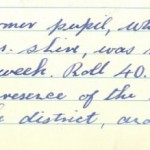 mer pupil, wh
s. shire, was
week. Roll 40.
resence of the
e district, and